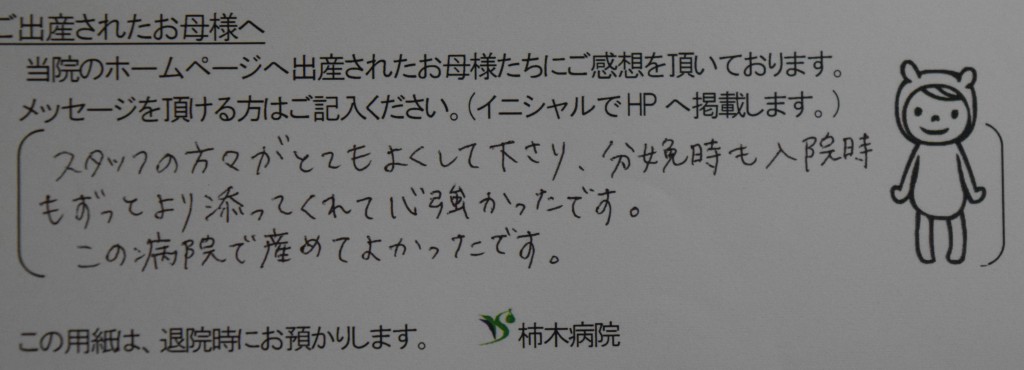 ご出産されたお母様へ
当院のホームページへ出産されたお母様たちにご感想を頂いております。
メッセージを頂ける方はご記入ください。(イニシャルでHPへ掲載します。)
スタッフの方々がとてもよくして下さり、分娩時も入院時
もずっとより添ってくれて心強かったです。
この病院で産めてよかったです。
この用紙は、退院時にお預かりします。 柿木病院